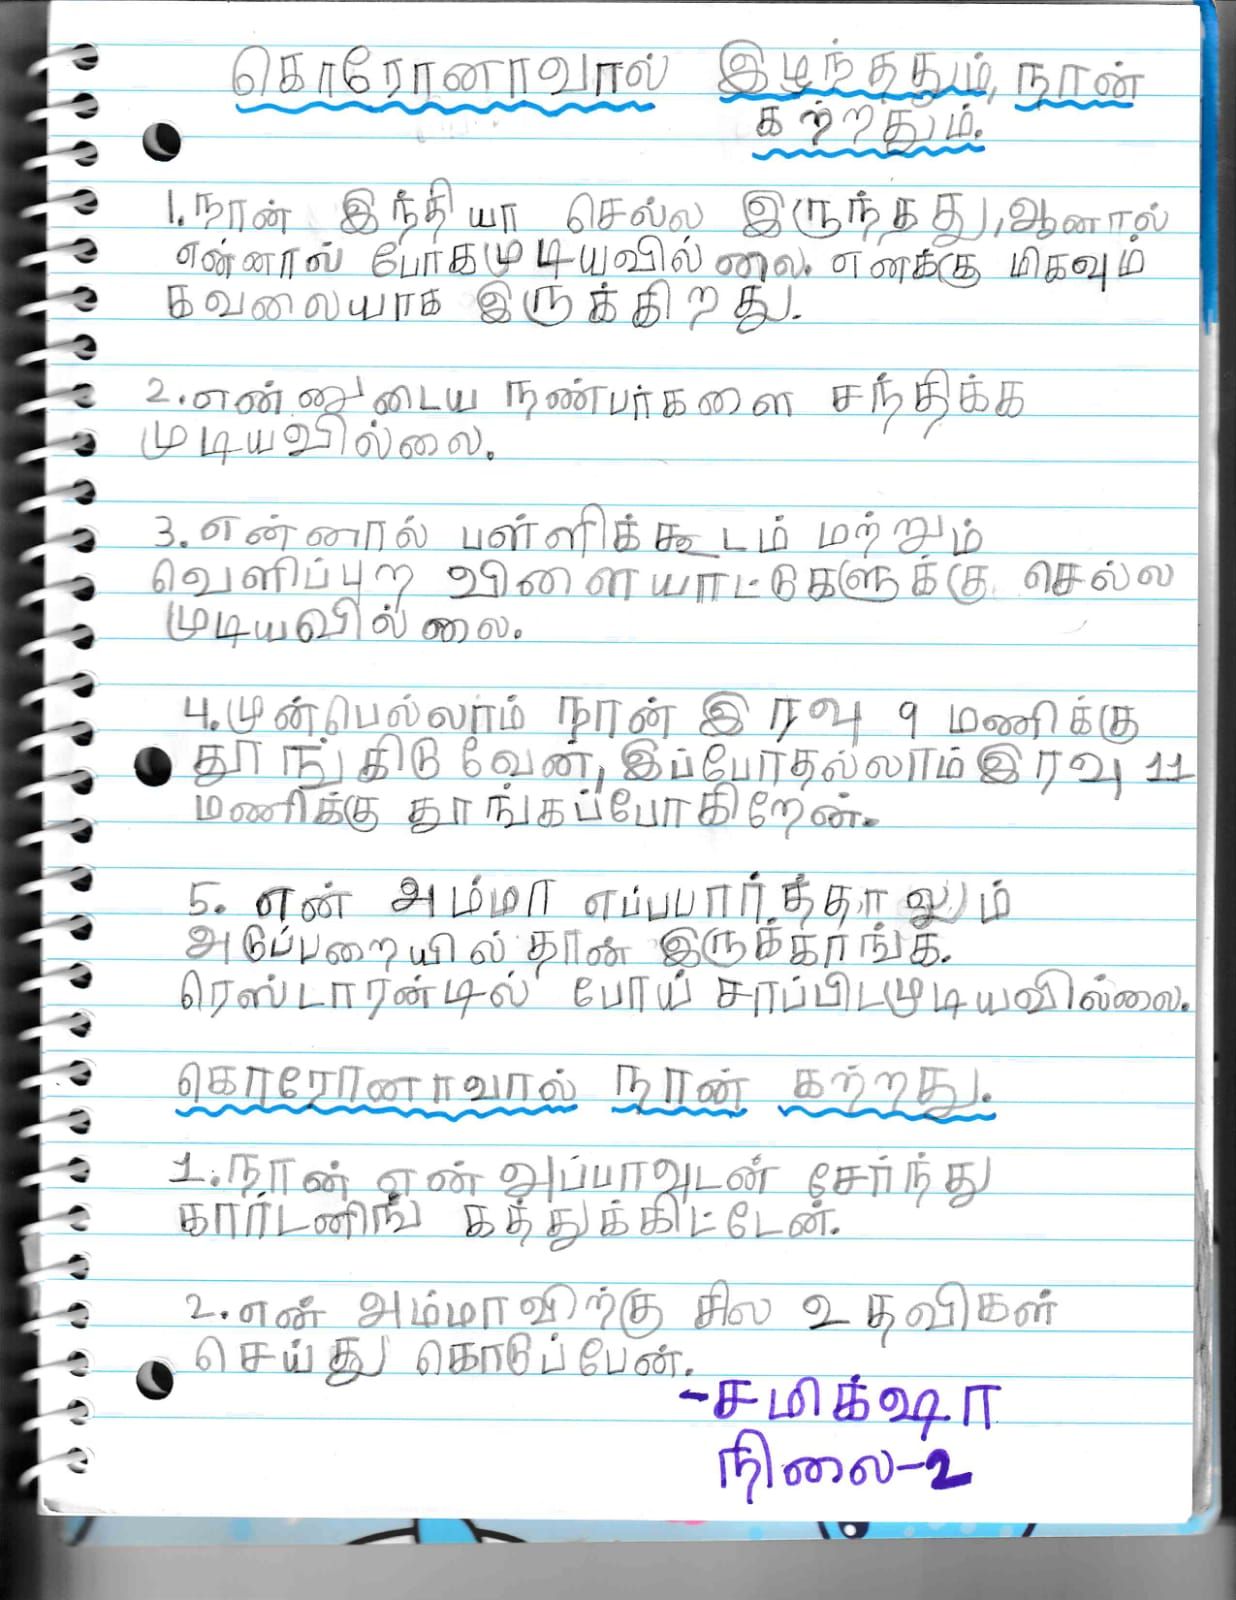 கொரோனாவால் இழந்ததும், நான்
கற்றதும்.
1. நான் இந்தியா செல்ல இருந்தது, ஆனால்
என்னால் போகமுடியவில்லை. எனக்கு மிகவும்
கவலையாக இருக்கிறது.
2. என்னுடைய நண்பர்களை சந்திக்க
முடியவில்லை.
3. என்னால் பள்ளிக்கூடம் மற்றும்
வெளிப்புற விளையாட்டுகளுக்கு செல்ல
முடியவில்லை.
4. முன்பெல்லாம் நான் இரவு 9 மணிக்கு
தூங்கிடுவேன், இப்போதல்லாம் இரவு 11
மணிக்கு தூங்கப்போகிறேன்.
5. என் அம்மா எப்பபார்த்தாலும்
அடுப்பறையில் தான் இருக்காங்க.
ரெஸ்டாரன்டில் போய் சாப்பிடமுடியவில்லை.
கொரோனாவால் நான் கற்றது.
1. நான் என் அப்பாவுடன் சேர்ந்து
கார்டனிங் கத்துக்கிட்டேன்.
2. என் அம்மாவிற்கு சில உதவிகள்
செய்து கொடுப்பேன்.
-சமிக்ஷா
நிலை-2